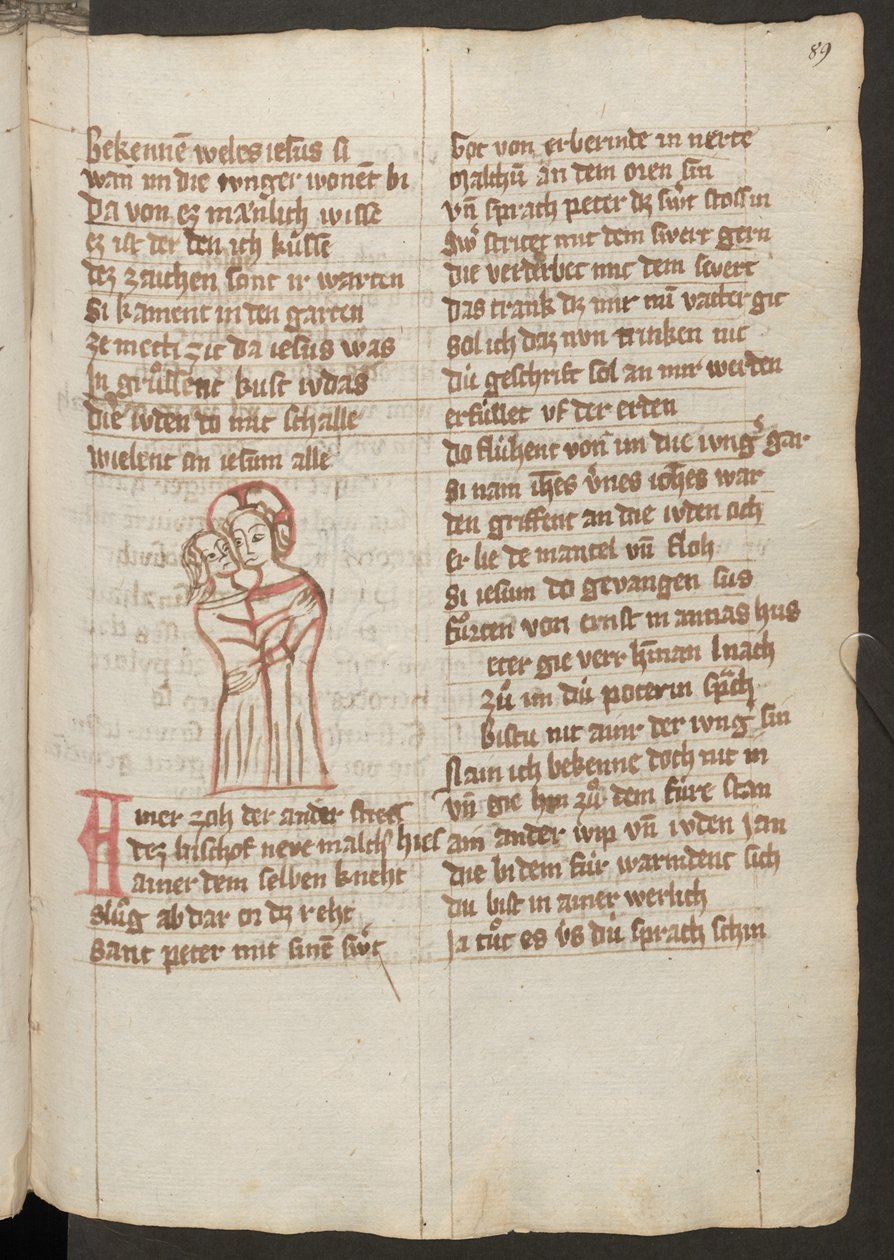 89
bekennē weles iesus si
wan̄ im die iunger wonēt bi
Da von ez mānlich wisse
ez ist der den ich küsse
dez zaichen sont ir warten
Si kament in den garten
ze metti zit da iesus was
In grůssent kust iudas
die iuden do mit schalle
vielent an iesum alle
Ainer zoh der ander stiess
dez bischof neve malch⁹ hies
ainer dem selben kneht
slůg ab dar or dz reht
Sant peter mit sinē swͤt
Got von erberinde in nerte
Malchū an dem oren sin
vn̄ sprach peter dz swͤt stoss in
Swͤ stritet mit dem swert gern
die verderbet mit dem swert
Das trank dz mir mī vatter git
sol ich daz nvn trinken nit
dü geschrift sol an mir werden
erfüllet vf der erden
do flühent von im die iungͤ gar
Si nam ih̄es v̄nes ioh̄es war
den griffent an die iuden och
er lie de mantel vn̄ floh
Si iesum do gevangen sus
fůrten von ernst in annas hus
eter gie verr hīnan nach
zů im dü poterin sp̄ch
bistu nit ainr der iungͤ sin
Nain ich bekenne doch nit in
vn̄ gie hin zů dem füre stan
am ander wip vn̄ iuden san
die bi dem für warmdent sich
du bist in ainer werlich
Ja tůt es v̄s dü sprach schin